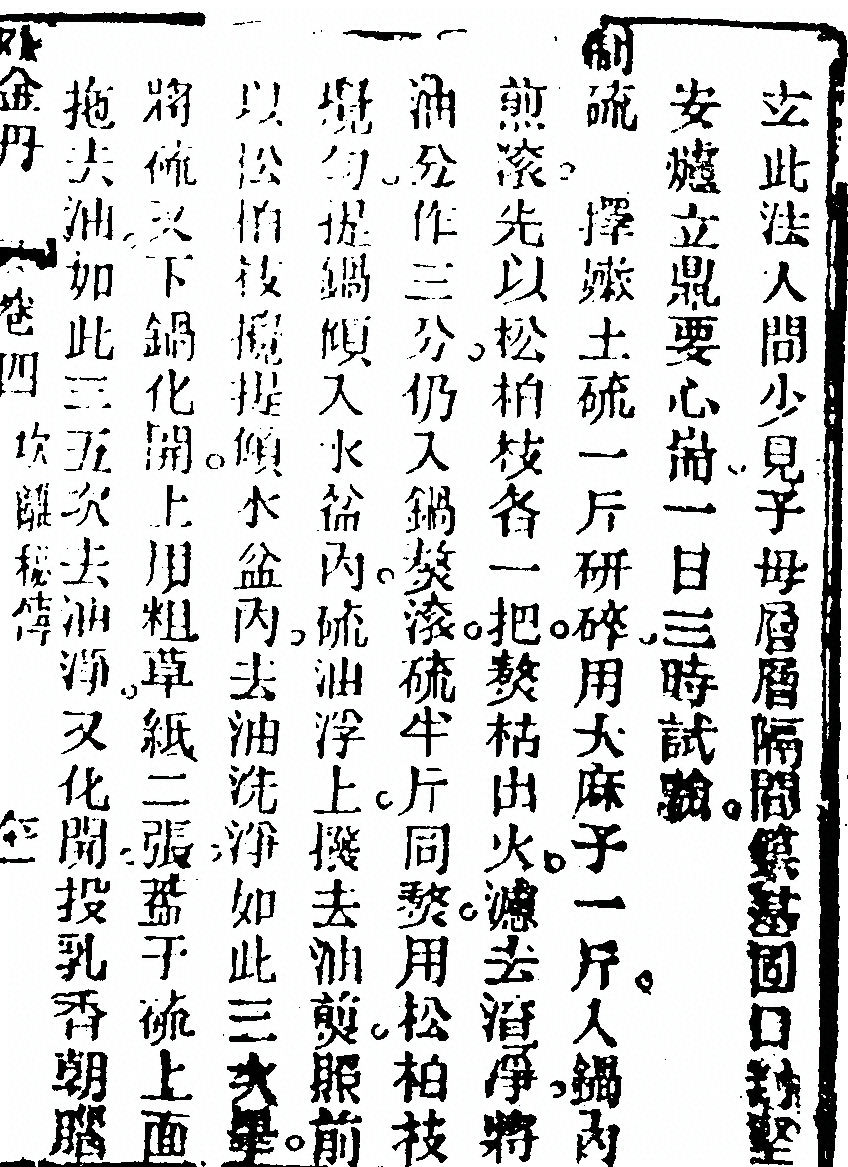 玄此法人間少見子母層層隔間築基固口封堅
安爐立鼎要心耑一日三時試驗
制硫　擇嫩土硫一斤研碎用大麻子一斤入鍋內
煎滚先以松柏枝各一把熬枯出火濾去渣淨將
油分作三分仍入鍋熬滚硫半斤同熬用松柏枝
攪勻提鍋傾入水盆內硫油浮上撥去油煎照前
以松柏枝攪提傾水盆內去油洗淨如此三次畢
將硫又下鍋化開上用粗草紙二張蓋于硫上面
拖去油如此三五次去油淨又化開投乳香朝腦
外金丹　卷四　坎離秘傳